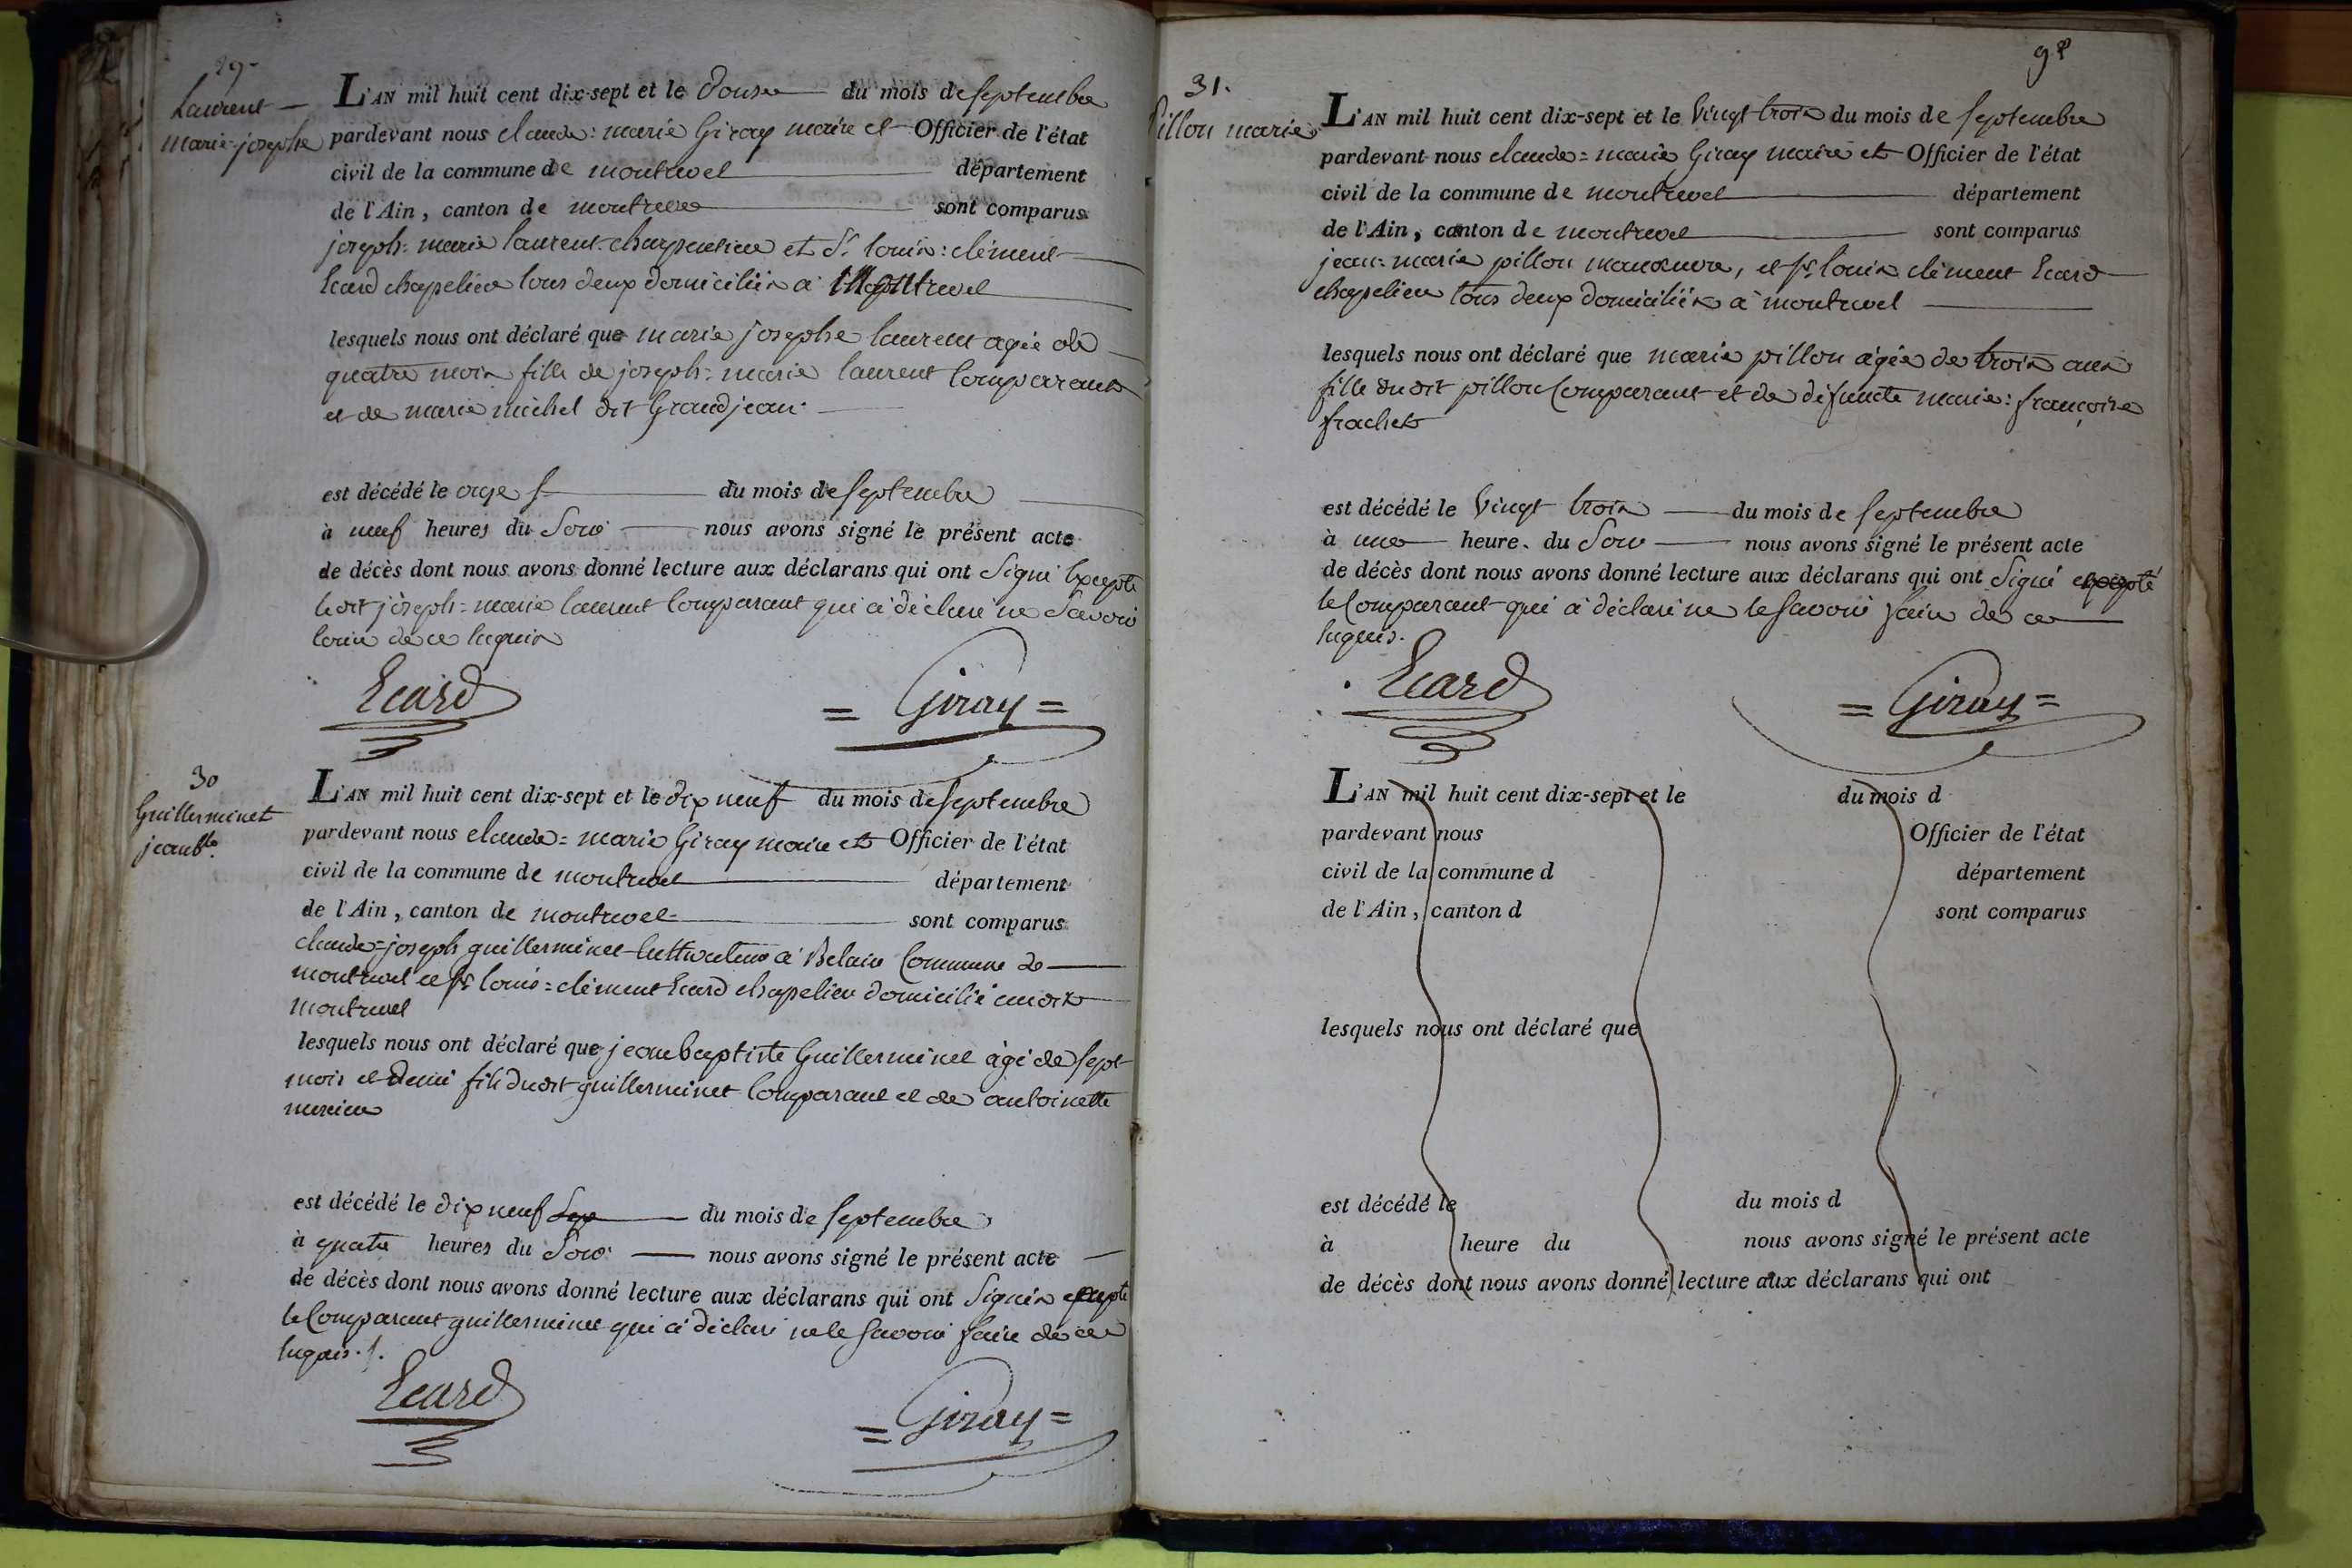 29.
Laurent
marie-josephe
L'AN mil huit cent dix-sept et le douse du mois de septembre
pardevant nous claude: marie Giray maire et Officier de l'état
civil de la commune de montrevel département
de l'Ain, canton de montrevel sont comparus
joseph: marie laurent charpentier et Sr. louis: clément
Ecard chapelier tous deux domiciliés a Montrevel
lesquels nous ont déclaré que marie josephe laurent agée de
quatre mois fille de joseph: marie laurent Comparant
et de marie michel dit Grandjean.
est décédé le onze du mois de septembre
à neuf heures du Soir nous avons signé le présent acte
de décès dont nous avons donné lecture aux déclarans qui ont Signé Excepté
ledit joseph: marie laurent Comparant qui a déclaré ne Savoir
de ce Enquis
Ecard = Giray =
30
Guillerminet
jean bte.
L'AN mil huit cent dix-sept et le dix neuf du mois de septembre
pardevant nous claude = marie Giray maire et Officier de l'état
civil de la commune de montrevel département
de l'Ain, canton de montrevel sont comparus
claude = joseph guillerminet Cultivateur a Belair Commune de
montrevel et Sr louis = clément Ecard chapelier domicilié audit
montrevel
lesquels nous ont déclaré que jean baptiste Guillerminet âgé de sept
mois et demi fils dudit guillerminet Comparant et de antoinette
mercier
est décédé le dix neuf du mois de septembre
à quatre heures du Soir nous avons signé le présent acte
de décès dont nous avons donné lecture aux déclarans qui ont Signés excepté
le Comparant guillerminet qui a déclaré ne le Savoir faire de ce
Enquis.
Ecard = Giray =
92
31.
Pillon marie
L'AN mil huit cent dix-sept et le Vingt trois du mois de septembre
pardevant nous claude = marie Giray maire et Officier de l'état
civil de la commune de montrevel département
de l'Ain, canton de montrevel sont comparus
jean: marie pillon manœuvre, et Sr. louis clément Ecard
chapelier tous deux domiciliés a montrevel
lesquels nous ont déclaré que marie pillon âgée de trois ans
fille dudit pillon Comparant et de défuncte marie: françoise
frachet
est décédé le Vingt trois du mois de septembre
à une heure. du Soir nous avons signé le présent acte
de décès dont nous avons donné lecture aux déclarans qui ont Signé excepté
le Comparant qui a déclaré ne le Savoir faire de ce
Enquis.
Ecard = Giray =
L'AN mil huit cent dix-sept et le du mois d
pardevant nous Officier de l'état
civil de la commune d département
de l'Ain, canton d sont comparus
lesquels nous ont déclaré que
est décédé le du mois d
à heure du nous avons signé le présent acte
de décès dont nous avons donné lecture aux déclarans qui ont